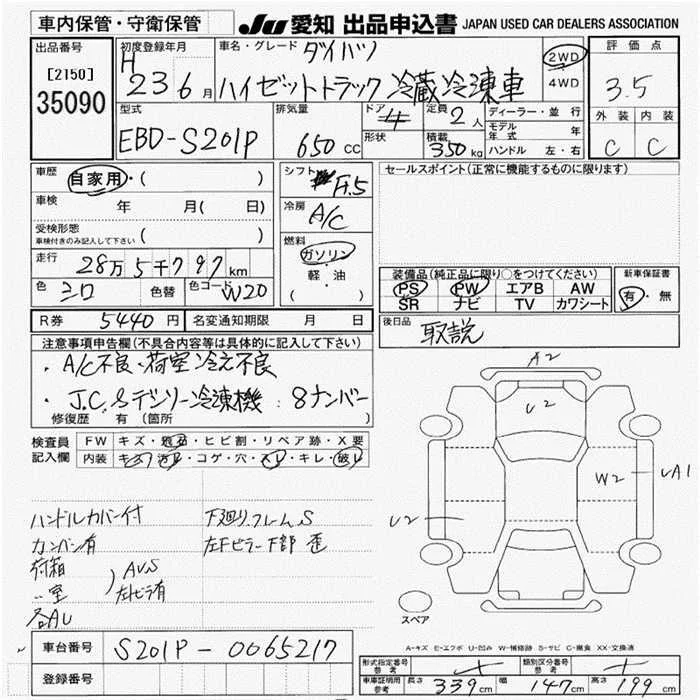 車内保管・守衛保管 JU 愛知 出品申込書 JAPAN USED CAR DEALERS ASSOCIATION
出品番号 [2150] 35090
初度登録年月 H 23 6月
車名・グレード ダイハツ
ハイゼットトラック 冷蔵冷凍車
2WD
4WD
評価点
3.5
外装 内装
C C
型式 EBD-S201P
排気量 650 CC
ドア 4 形状
定員 2人
積載 350 kg
ディーラー・並行
モデル年式 年
ハンドル 左・右
車歴 自家用・( )
車検 年 月( 日)
受検形態
車検付きのみ記入して下さい ( )
走行 28万5千797km
色 シロ 色替 色コード W20
シフト F.5
冷房 A/C
燃料
ガソリン
・軽・油
( )
セールスポイント(正常に機能するものに限ります)
装備品(純正品に限り○をつけてください)
PS PW エアB AW
SR ナビ TV カワシート
新車保証書
有・無
R券 5440円 名変通知期限 月 日
後日品 取説
注意事項申告欄(不具合内容等は具体的に記入して下さい)
・A/C不良・荷室冷え不良
・J.C,&デンソー冷凍機:8ナンバー
修復歴 有(箇所 )
検査員記入欄
FW キズ・飛石・ヒビ割・リペア跡・X要
内装 キズ・汚れ・コゲ・穴・スレ・キレ・破レ
ハンドルカバー付
カンバン有
荷箱
〃室
AUS
左トビラ有
各AU
下廻り,フレームS
左Fピラー下部 歪
A2
U2
W2
UA1
U2
スペア
A-キズ E-エクボ U-凹み W-補修跡 S-サビ C-腐食 XX-交換済
車台番号 S201P-0065217
登録番号
形式指定番号 参考
類別区分番号 参考
車庫証明用 参考 長さ 339cm 幅 147cm 高さ 199cm